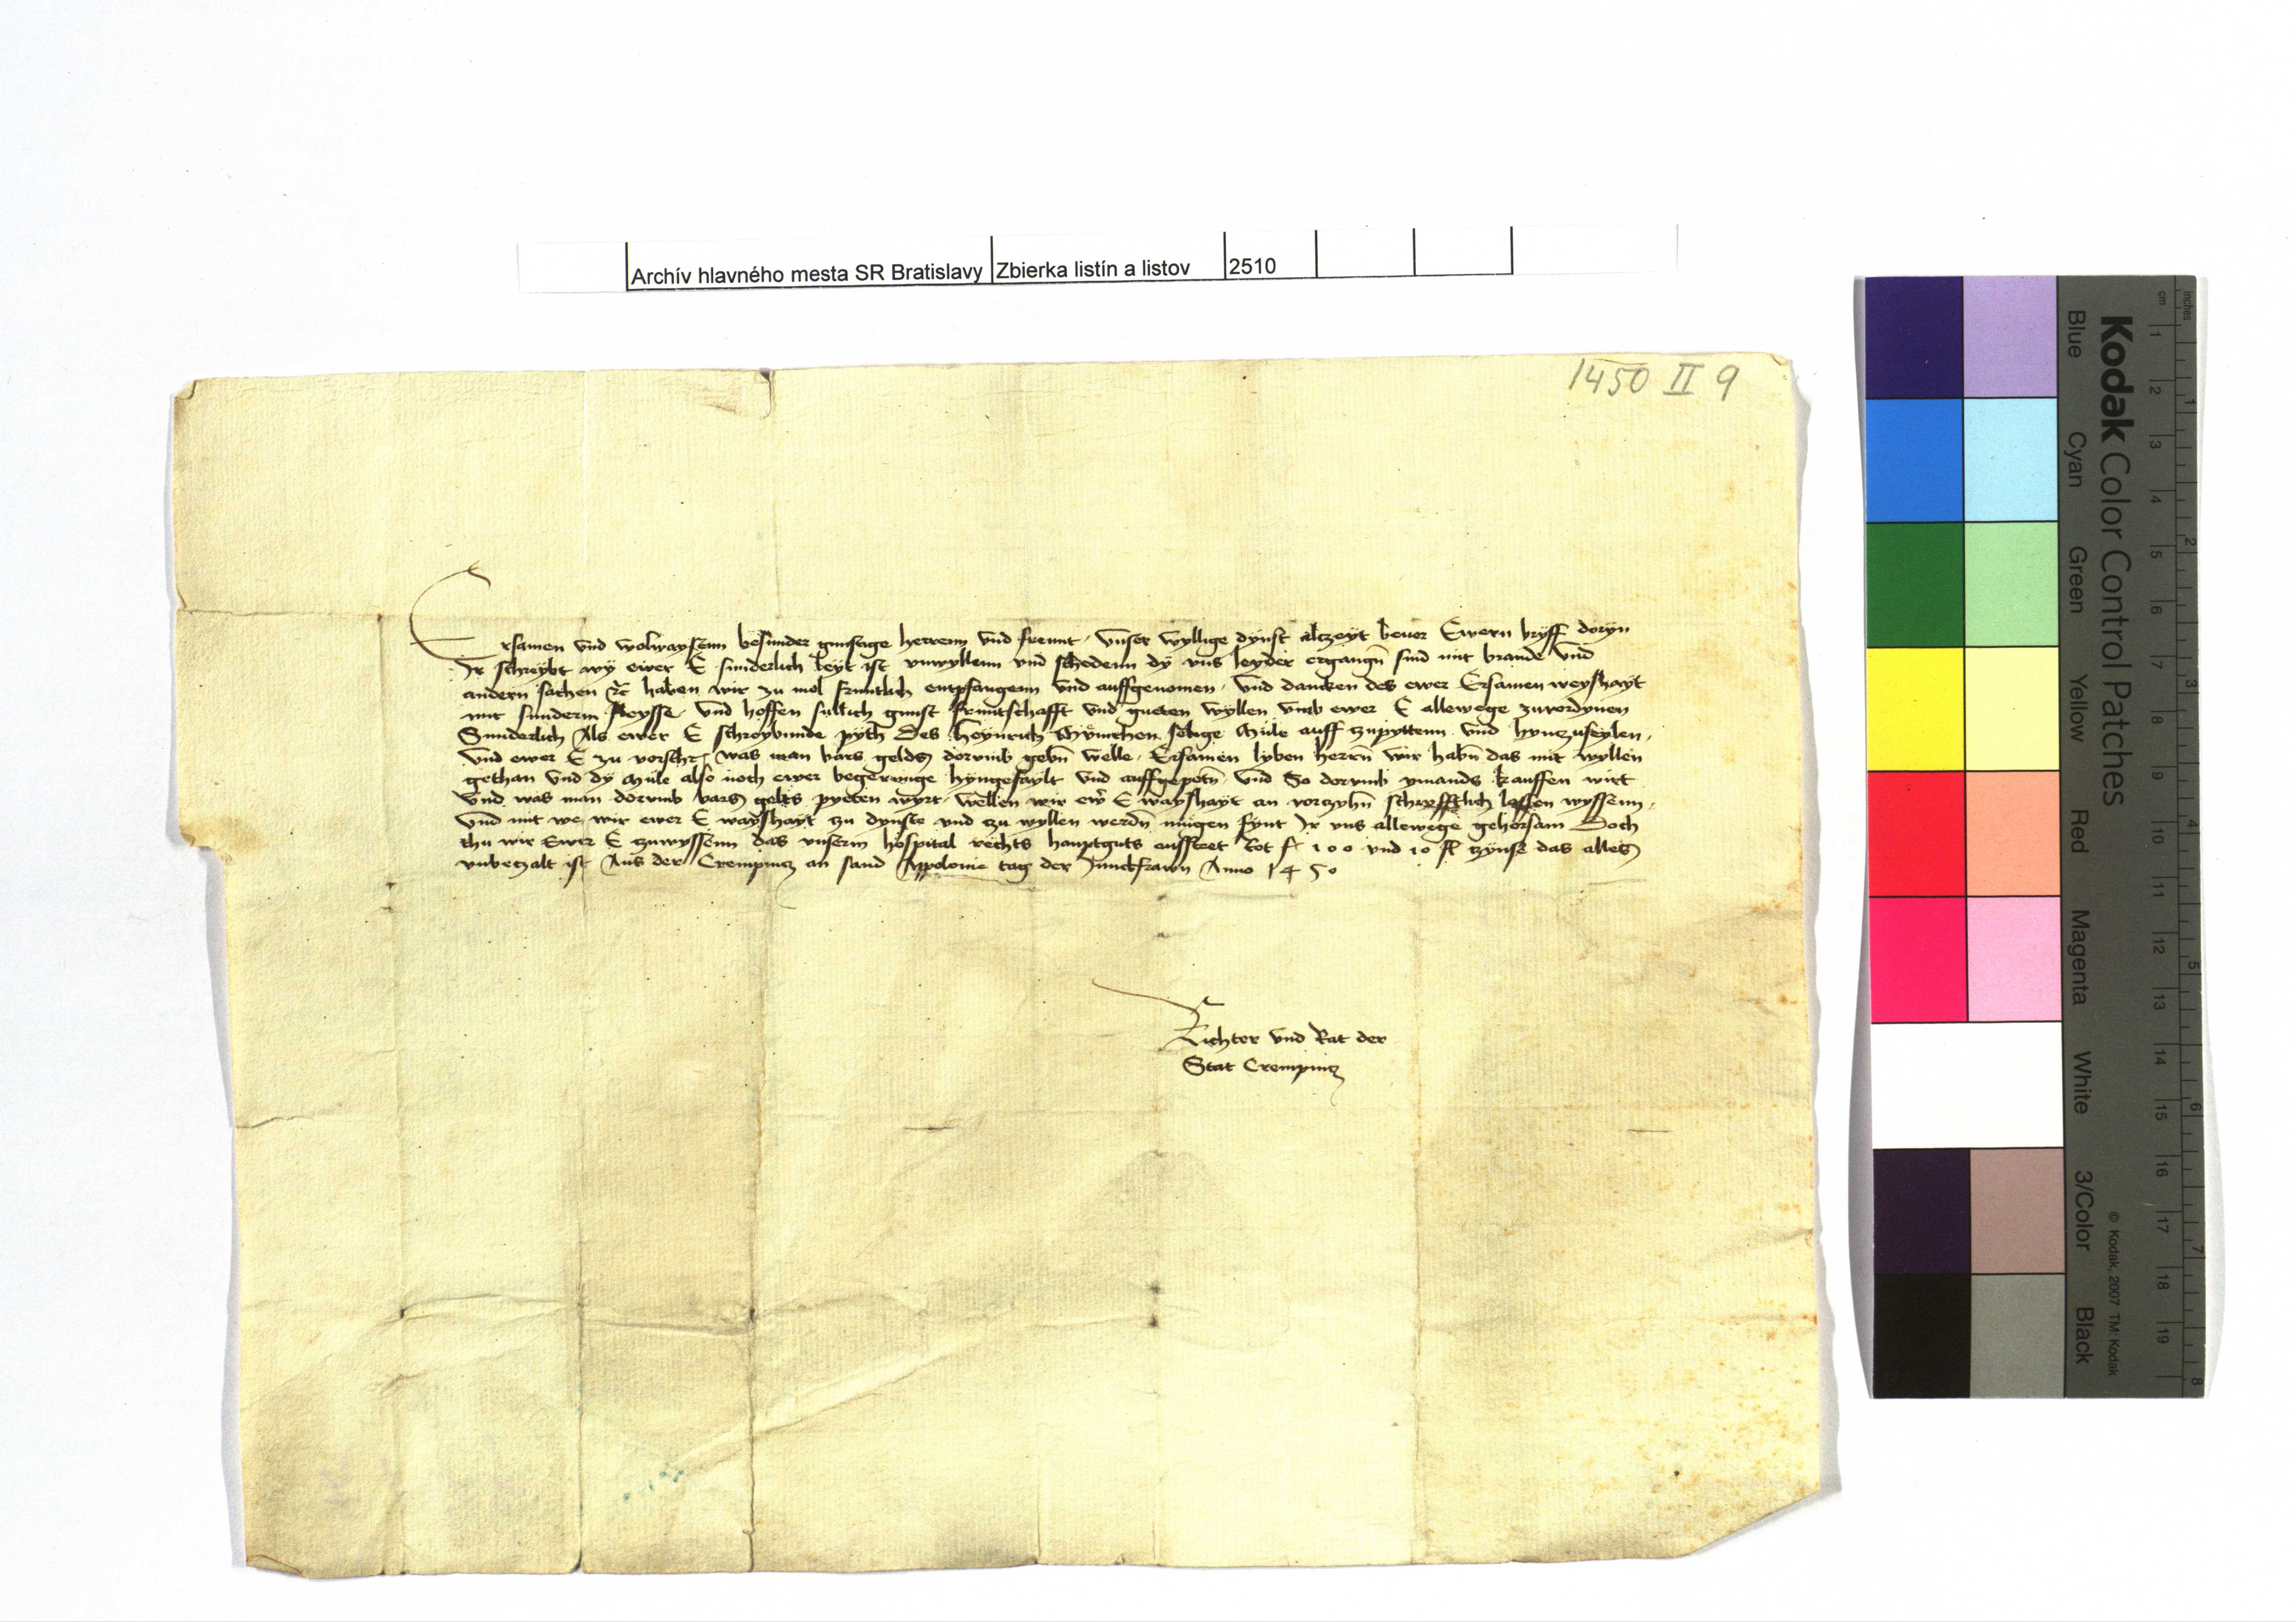 Archív hlavného mesta SR Bratislavy Zbierka listín a listov 2510
1450 II 9
Ersamen vnd wolwaysenn besunder gunstige herrenn vnd frewnt · Vnser wyllige dynst alczeyt beuor Ewern bryff doryn
Ir schreybt wy ewer E sunderlich leyt ist vnwyllenn vnd schedenn dy vns leyder ergangn̄ sind mit brande vnd
andern sachen haben wir zu mol fruntlich entpfangenn vnd auffgenomen · Vnd dancken des ewer Ersamen weyshayt
mit sunderm fleysse · Vnd hoffen sullich gunst fruntschafft vnd gueten wyllen vmb ewer E allewege zuuordynen
Sunderlich Als ewer E schreybunde pyth des Heynrich selige Müle auff zupyttenn vnd hynczufeylen ·
Vnd ewer E zu vorschr was man bars gelds dorvmb gebn̄ welle · Ersamen lyben herrn̄ wir habn̄ das mit wyllen
gethan Vnd dy Müle also noch ewer begerunge hyngefaylt vnd auffgepotn̄ Vnd So dorvmb ymands kauffen wirt
Vnd was man dorvmb bars gelts pyeten wyrt · Wellen wir ew̄ E wayshayt an vorczyhn̄ schryfftlich lossen wyssenn ·
Vnd mit we wir ewer E wayshayt zu dynste vnd zu wyllen werdn̄ mügen fynt Ir vns allewege gehorsam Doch
thu wir Ewer E zuwyssenn das vnserm hospital rechts hauptguts aussteet fl 100 vnd 10 fl zynse das alles
vnbeczalt ist Aus der Crempnicz an sand Appolonie tag der Junckfrawn Anno 1450
Richter vnd Rat der
Stat Crempnicz
Kodak Color Control Patches
Blue Cyan Green Yellow Red Magenta White 3/Color Black
© Kodak, 2007 TM: Kodak
inches 1 2 3 4 5 6 7 8
cm 1 2 3 4 5 6 7 8 9 10 11 12 13 14 15 16 17 18 19